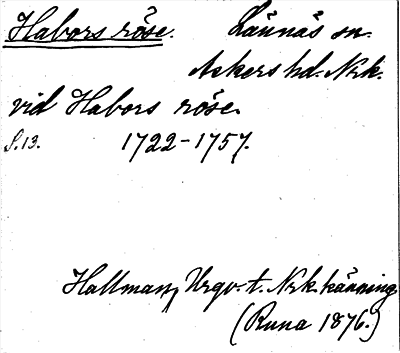 Habors röse. Lännäs sn.
Askers hd. Nrk.
vid Habors röse.
S. 13. 1722-1757.
Hallman, Urgv. t. Nrk. känning
(Runa 1876.)